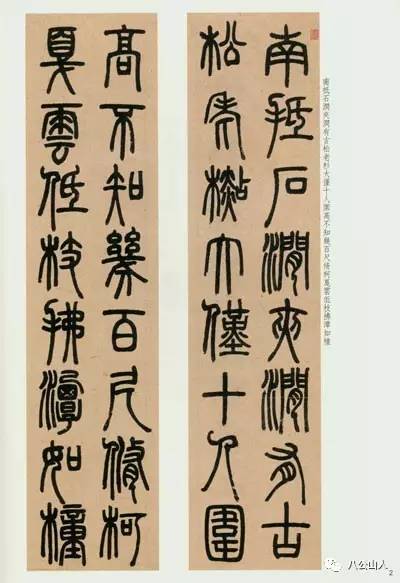 南抵石澗夾澗有古
松老杉大僅十人圍
高不知幾百尺脩柯
戛雲低枝拂潭如幢
南抵石澗夾澗有古松老杉大僅十人圍高不知幾百尺脩柯戛雲低枝拂潭如幢
八公山人
2